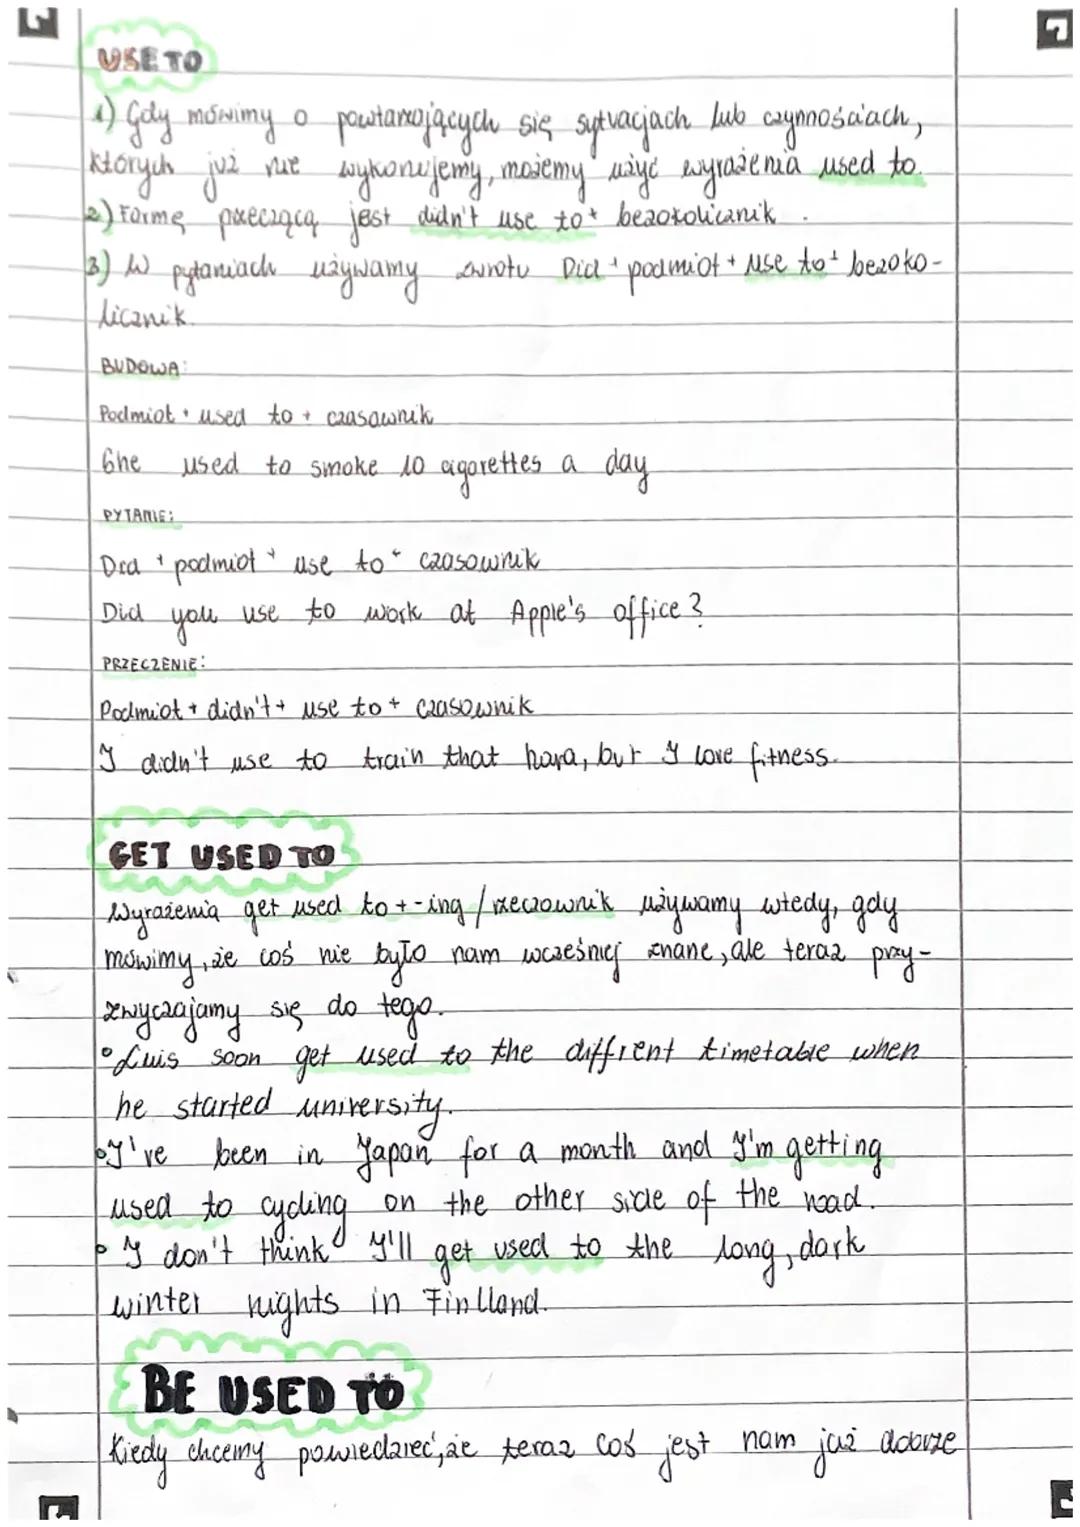 USE TO
1) Gdy mówimy o powtarzających się sytuacjach lub czynnościach,
których już nie wykonujemy, możemy użyć wyrażenia used to.
2) Formą przeczącą jest didn't use to + bezokolicznik.
3) W pytaniach używamy zwrotu Did + podmiot + use to + bezoko-
licznik.
BUDOWA:
Podmiot + used to + czasownik
She used to smoke 10 cigarettes a day
PYTANIE:
Did + podmiot + use to + czasownik
Did you use to work at Apple's office?
PRZECZENIE:
Podmiot + didn't + use to + czasownik
I didn't use to train that hard, but I love fitness.
GET USED TO
Wyrażenia get used to + -ing / rzeczownik używamy wtedy, gdy
mówimy, że coś nie było nam wcześniej znane, ale teraz przy-
zwyczajamy się do tego.
• Luis soon get used to the diffrent timetable when
he started university.
• I've been in Japan for a month and I'm getting
used to cycling on the other side of the road.
• I don't think I'll get used to the long, dark
winter nights in Finlland.
BE USED TO
Kiedy chcemy powiedzieć, że teraz coś jest nam już dobrze